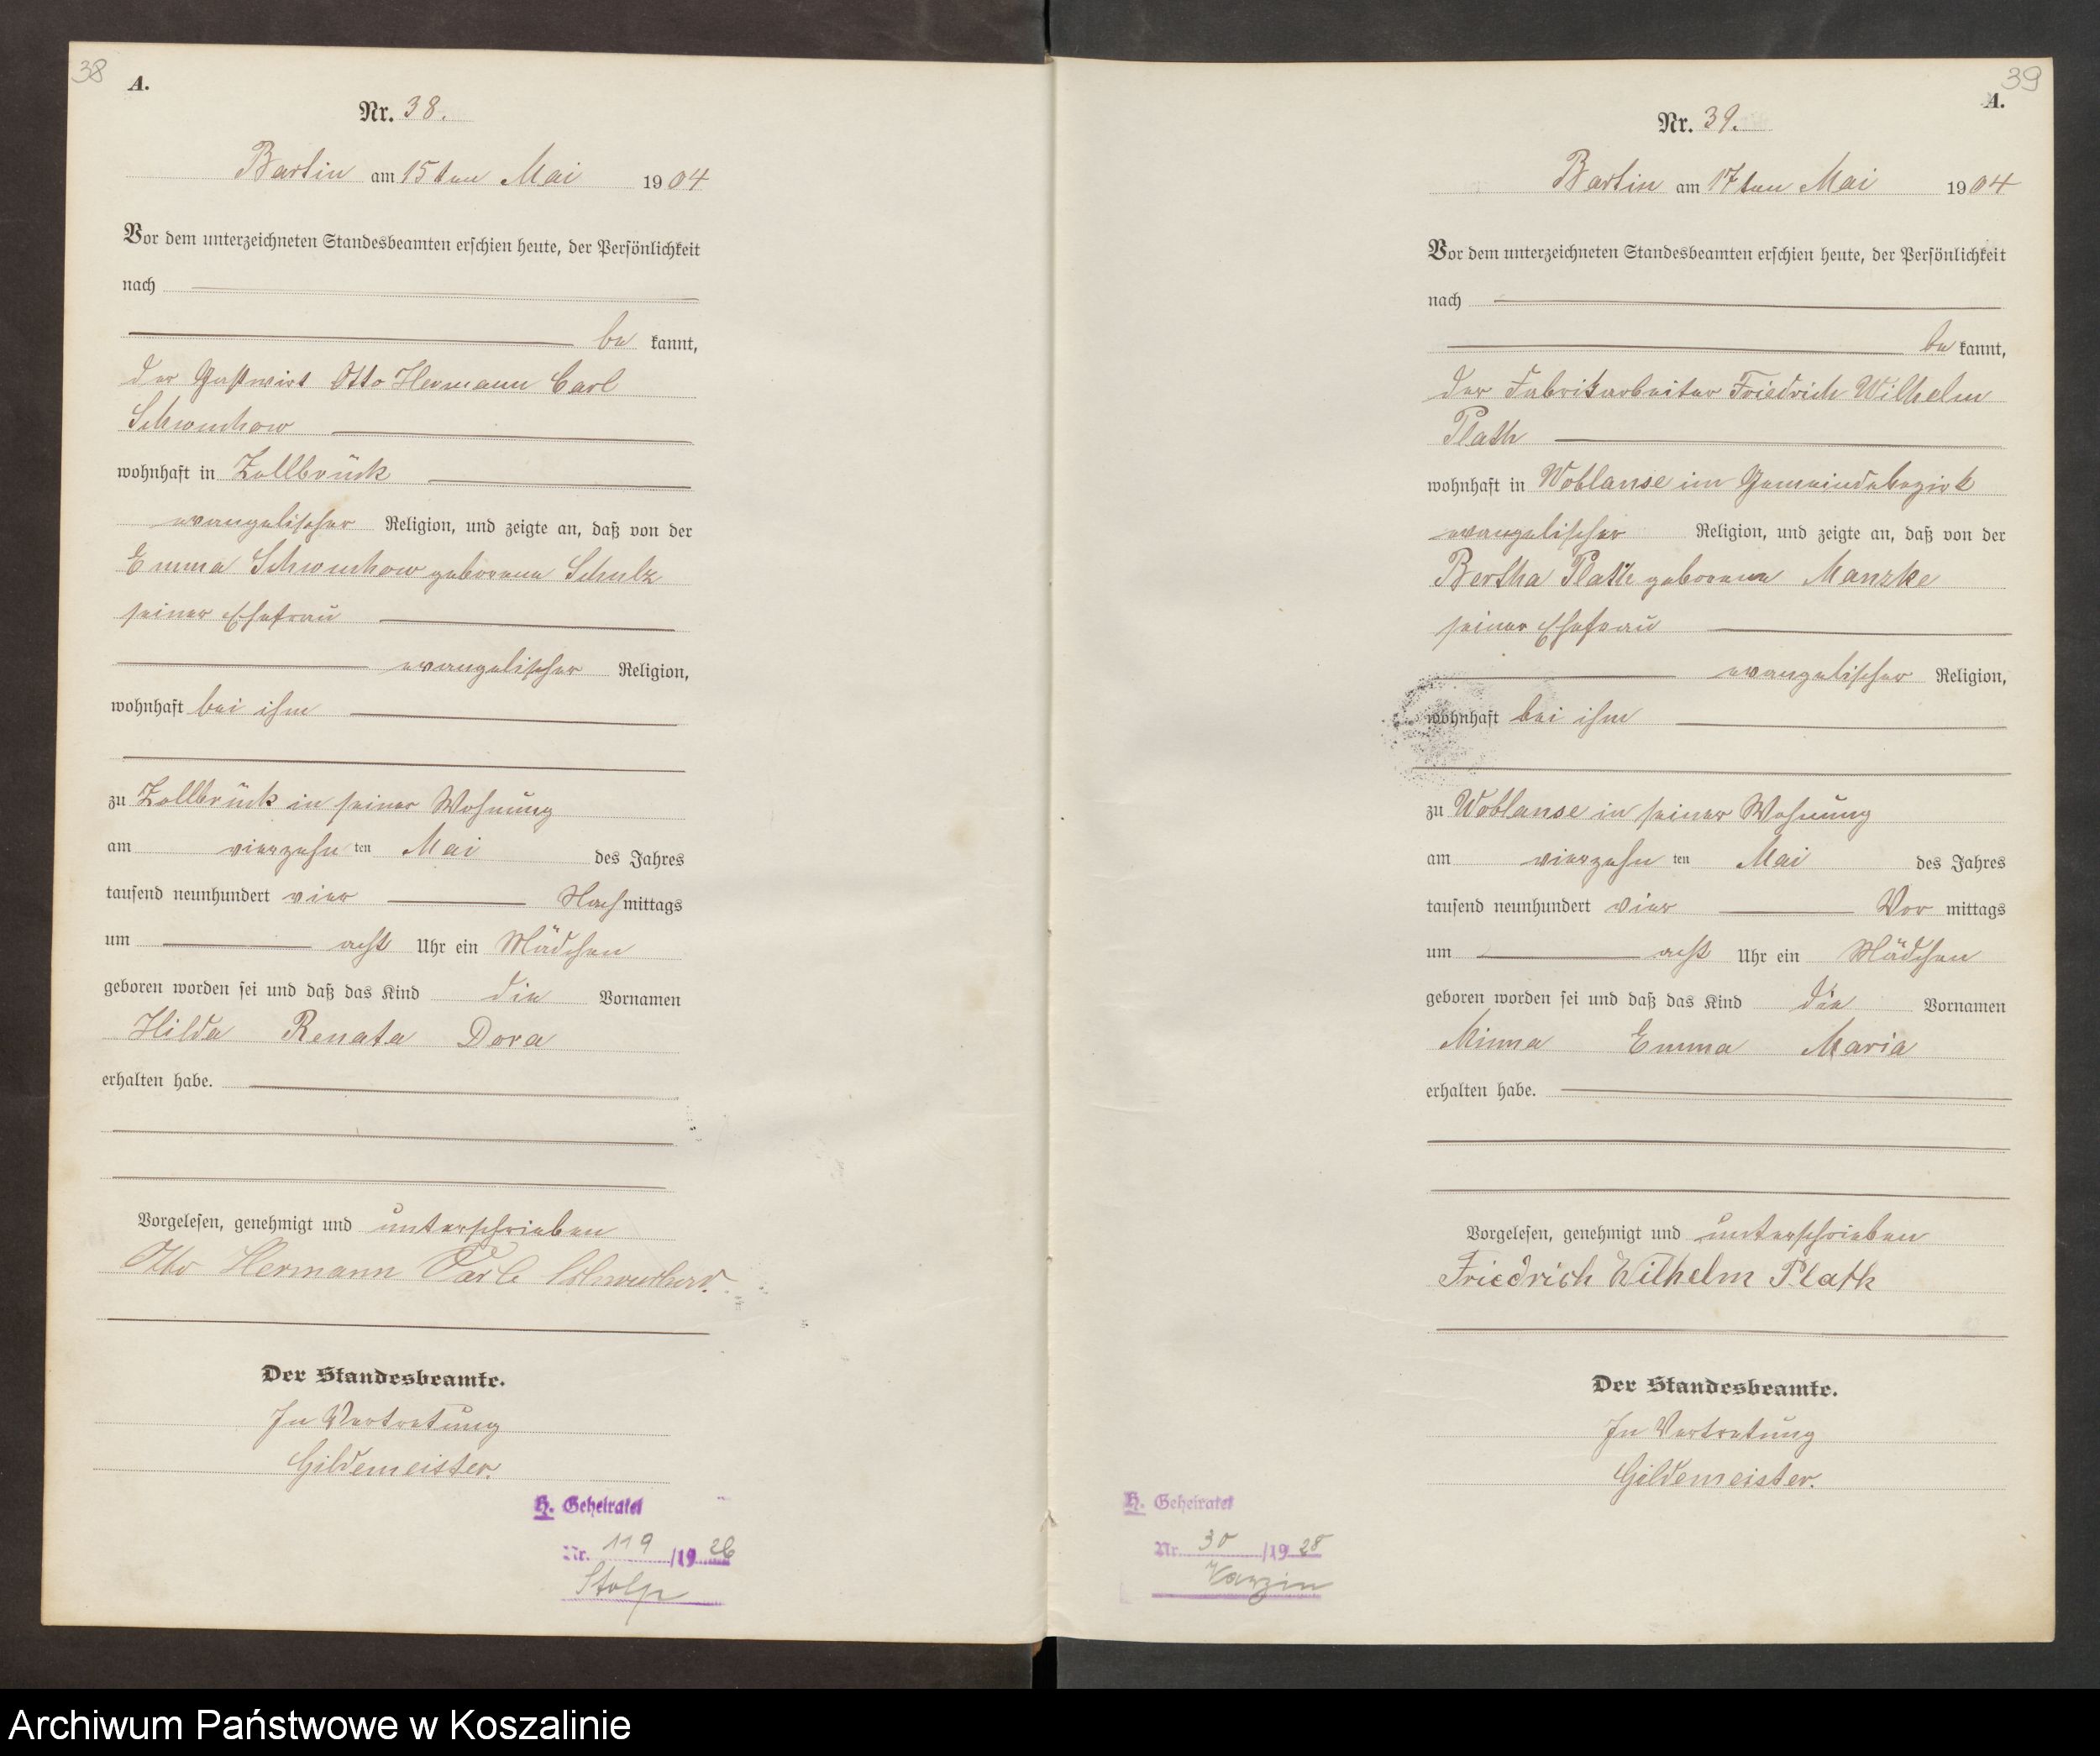 38
A.
Nr. 38.
Bartin am 15ten Mai 1904
Vor dem unterzeichneten Standesbeamten erschien heute, der Persönlichkeit
nach
be kannt,
der Gastwirt Otto Hermann Carl
Schwuchow
wohnhaft in Zollbrück
evangelischer Religion, und zeigte an, daß von der
Emma Schwuchow geborene Schulz
seiner Ehefrau
evangelischer Religion,
wohnhaft bei ihm
zu Zollbrück in seiner Wohnung
am vierzehn ten Mai des Jahres
tausend neunhundert vier Nachmittags
um acht Uhr ein Mädchen
geboren worden sei und daß das Kind die Vornamen
Hilda Renata Dora
erhalten habe.
Vorgelesen, genehmigt und unterschrieben
Otto Hermann Carl Schwuchow.
Der Standesbeamte.
In Vertretung
Gildemeister.
H. Geheiratet
Nr. 119 /1926
Stolp
39
A.
Nr. 39.
Bartin am 17ten Mai 1904
Vor dem unterzeichneten Standesbeamten erschien heute, der Persönlichkeit
nach
be kannt,
der Fabrikarbeiter Friedrich Wilhelm
Plath
wohnhaft in Woblanse im Gemeindebezirk
evangelischer Religion, und zeigte an, daß von der
Bertha Plath geborene Manzke
seiner Ehefrau
evangelischer Religion,
wohnhaft bei ihm
zu Woblanse in seiner Wohnung
am vierzehn ten Mai des Jahres
tausend neunhundert vier Vor mittags
um acht Uhr ein Mädchen
geboren worden sei und daß das Kind die Vornamen
Minna Emma Maria
erhalten habe.
Vorgelesen, genehmigt und unterschrieben
Friedrich Wilhelm Plath
Der Standesbeamte.
In Vertretung
Gildemeister.
H. Geheiratet
Nr. 30 /1928
Varzin
Archiwum Państwowe w Koszalinie